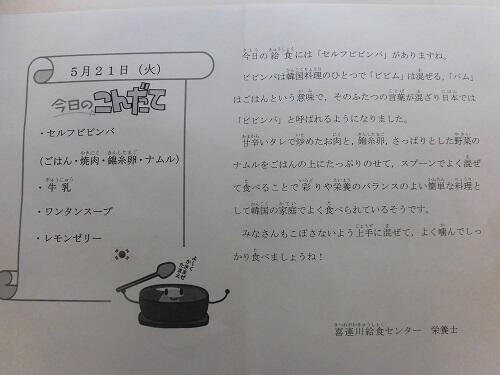 5月21日（火）
今日のこんだて
・セルフビビンバ
(ごはん・焼肉・錦糸卵・ナムル)
・牛乳
・ワンタンスープ
・レモンゼリー
今日の給食には「セルフビビンバ」がありますね。
ビビンバは韓国料理のひとつで「ビビム」は混ぜる,「バム」
はごはんという意味で，そのふたつの言葉が混ざり日本では
「ビビンバ」と呼ばれるようになりました。
甘辛いタレで炒めたお肉と，錦糸卵，さっぱりとした野菜の
ナムルをごはんの上にたっぷりのせて，スプーンでよく混ぜ
て食べることで彩りや栄養のバランスのよい簡単な料理と
して韓国の家庭でよく食べられているそうです。
みなさんもこぼさないよう上手に混ぜて，よく噛んでしっ
かり食べましょうね！
喜連川給食センター　栄養士